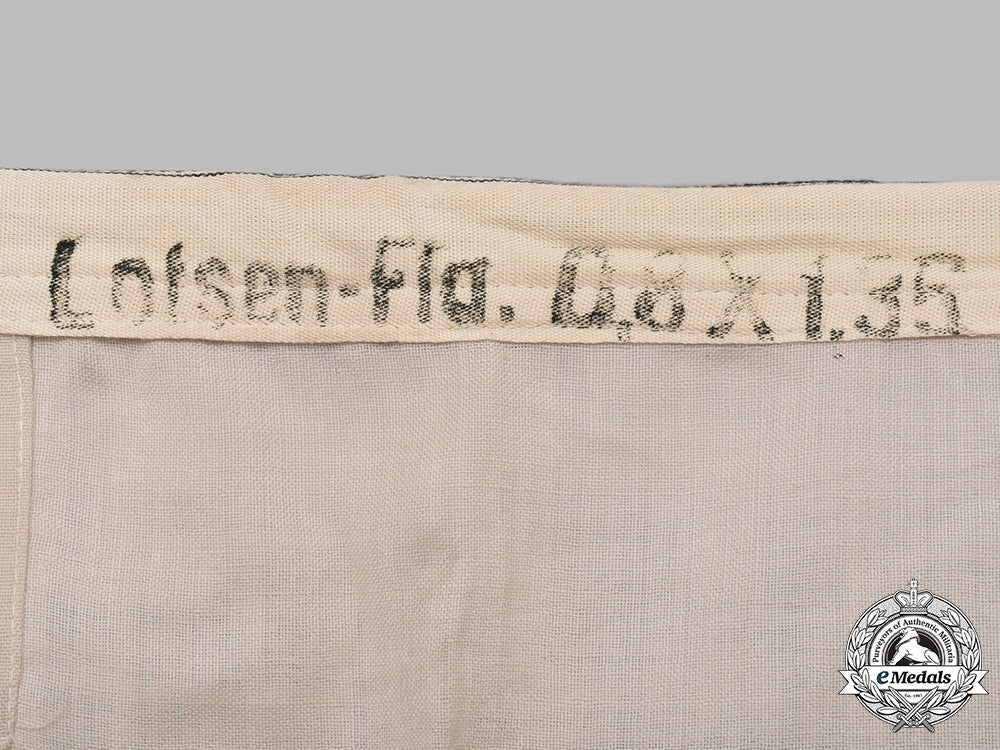 Lotsen-Flg. 0,8 X 1.35
Purveyors of Authentic Militaria
eMedals